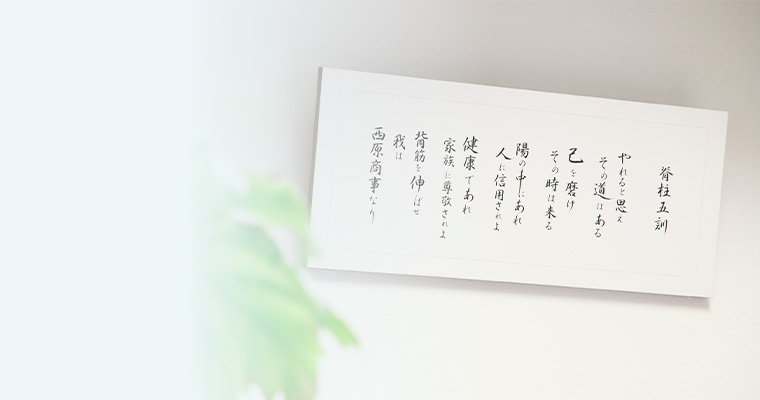 脊柱五訓
やれると思え
その道はある
己を磨け
その時は来る
陽の中にあれ
人に信用されよ
健康であれ
家族に尊敬されよ
背筋を伸ばせ
我は
西原商事なり